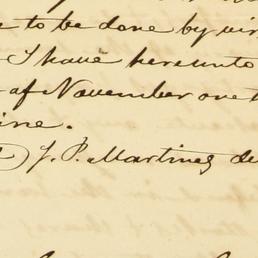 to be done by vir
I have hereunto
of November one t
ine.
J. P. Martinez de